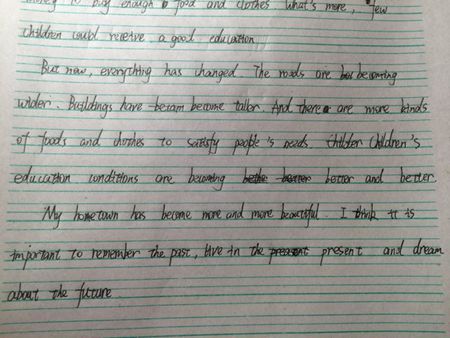 money to buy enough food and clothes what's more, few
children could receive a good education
But now, everything has changed. The roads are becoming
wider. Buildings have become taller. And there are more kinds
of foods and clothes to satisfy people's needs. Children's
education conditions are becoming better and better.
My hometown has become more and more beautiful. I think it is
important to remember the past, live in the present and dream
about the future